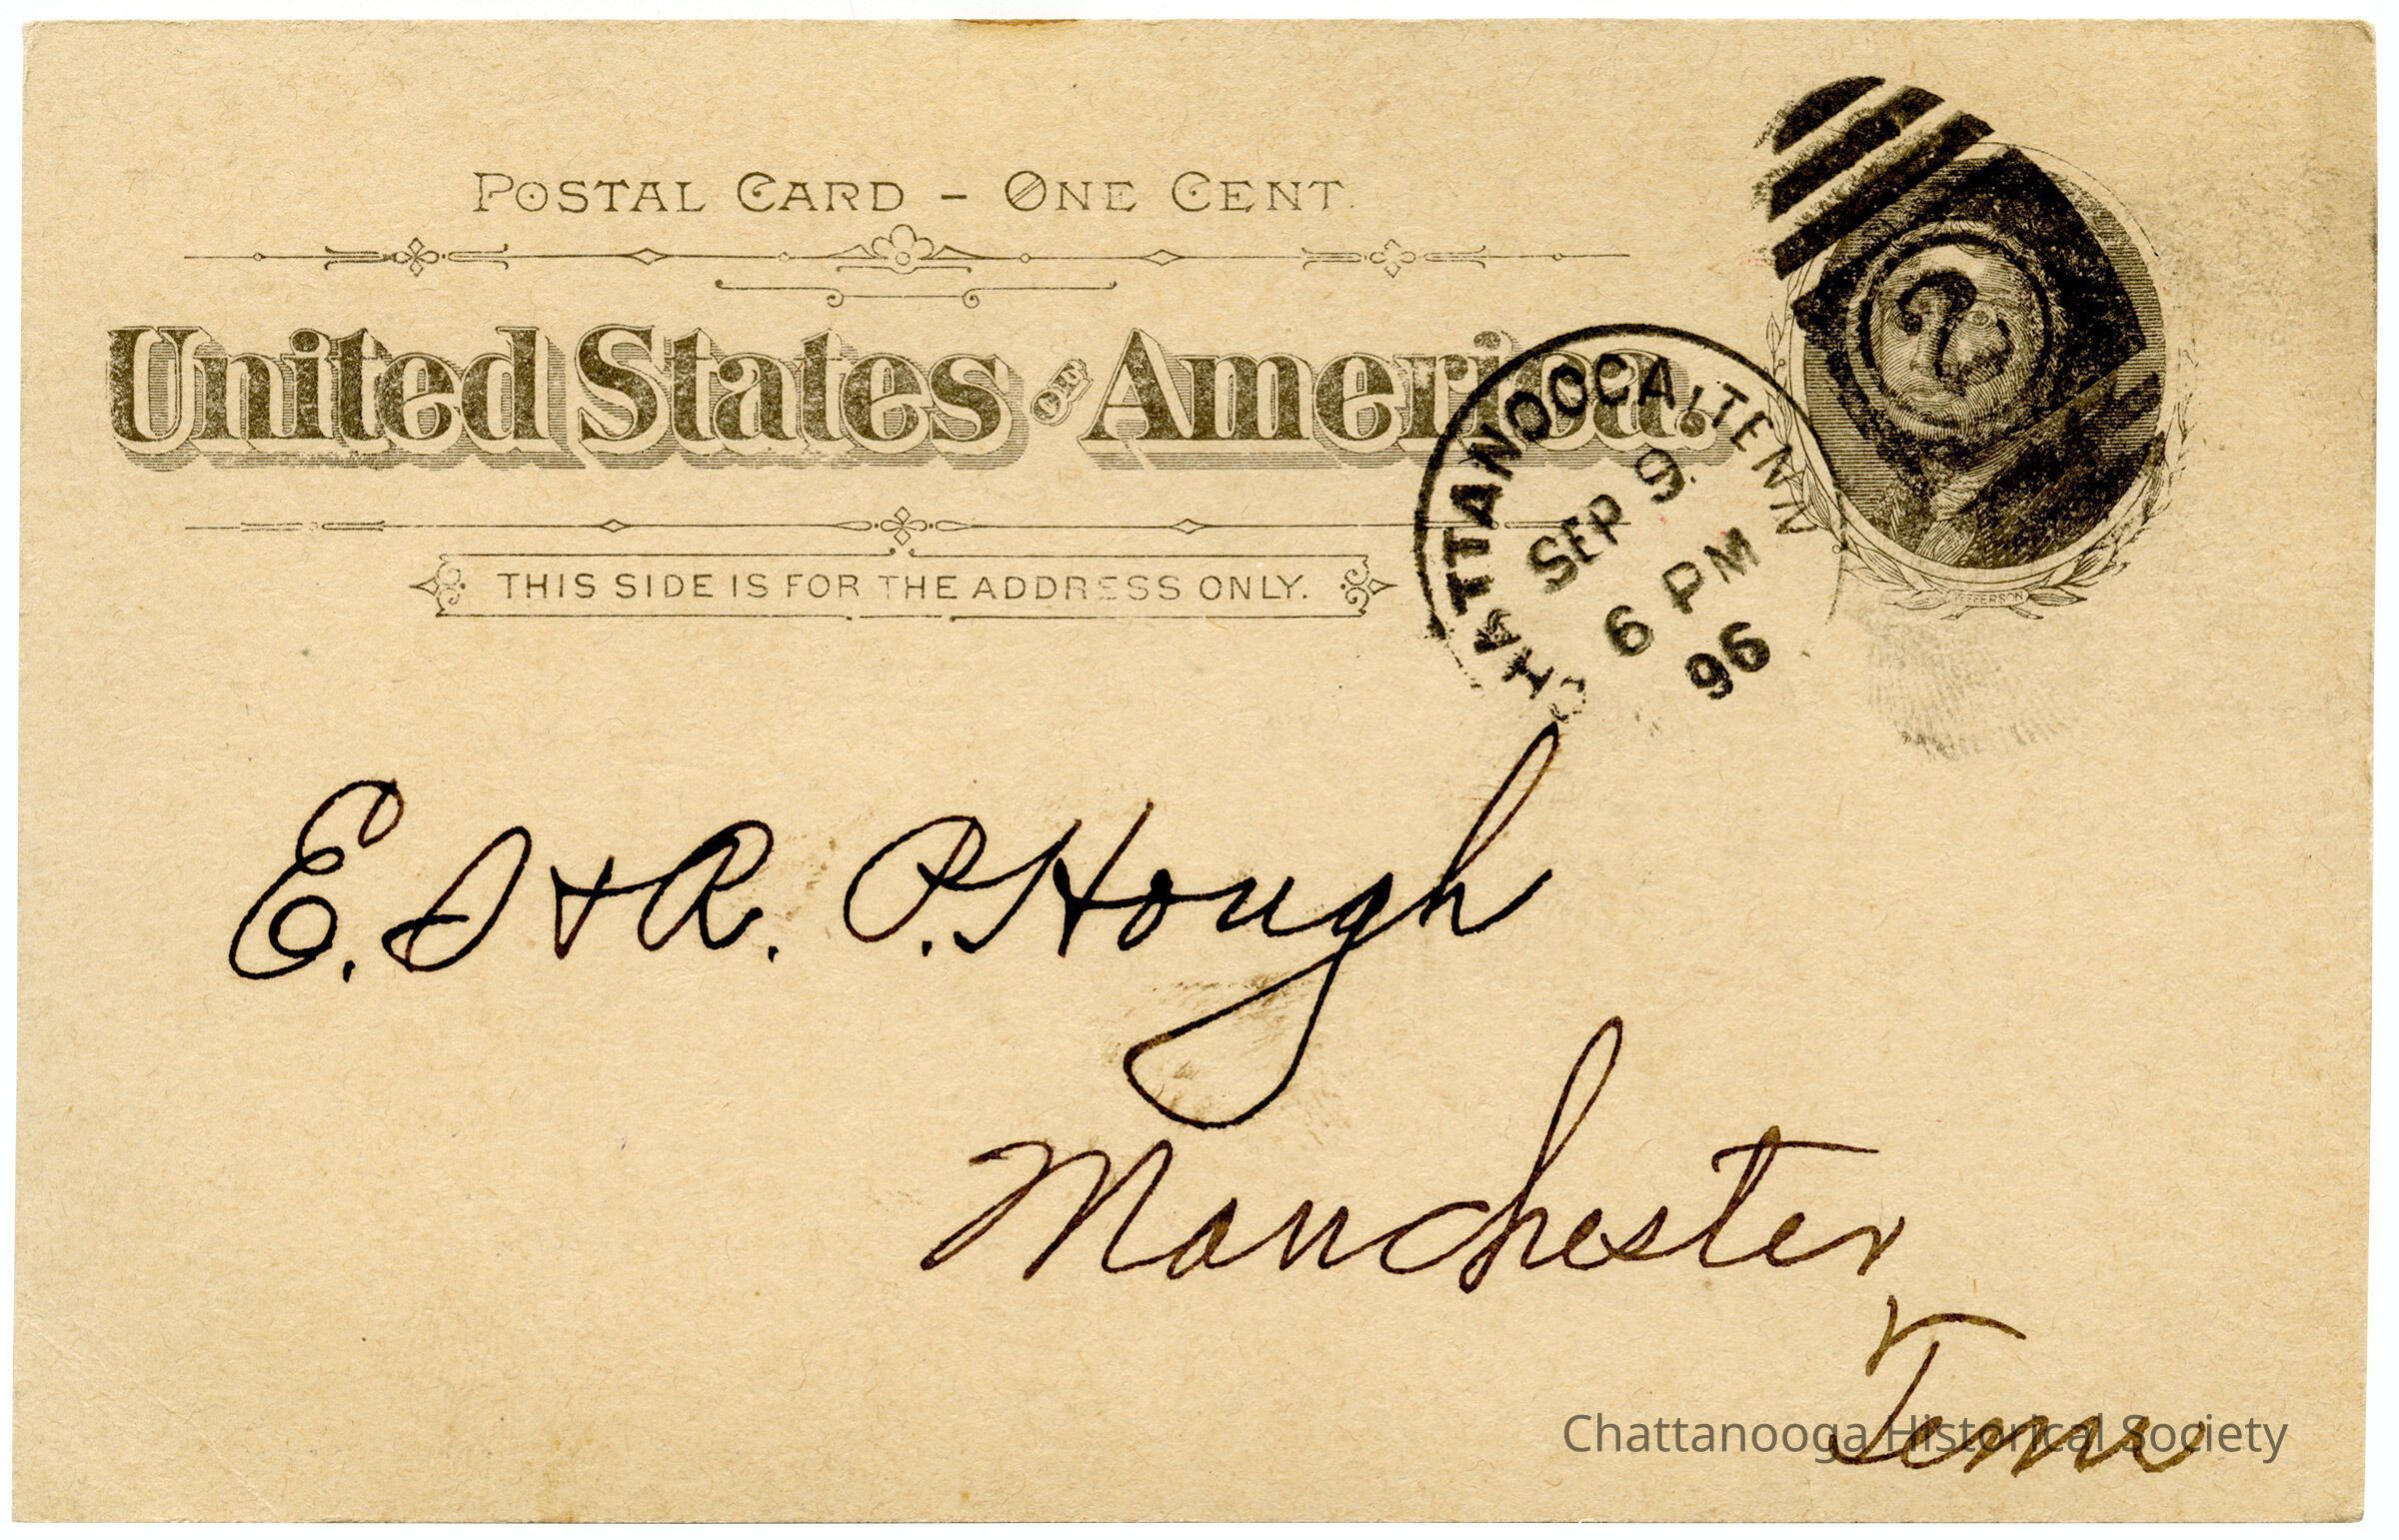 POSTAL CARD – ONE CENT.
United States OF America.
THIS SIDE IS FOR THE ADDRESS ONLY.
CHATTANOOGA, TENN
SEP 9.
6 PM
96
2
JEFFERSON
E. & R. P. Hough
Manchester
Tenn
Chattanooga Historical Society